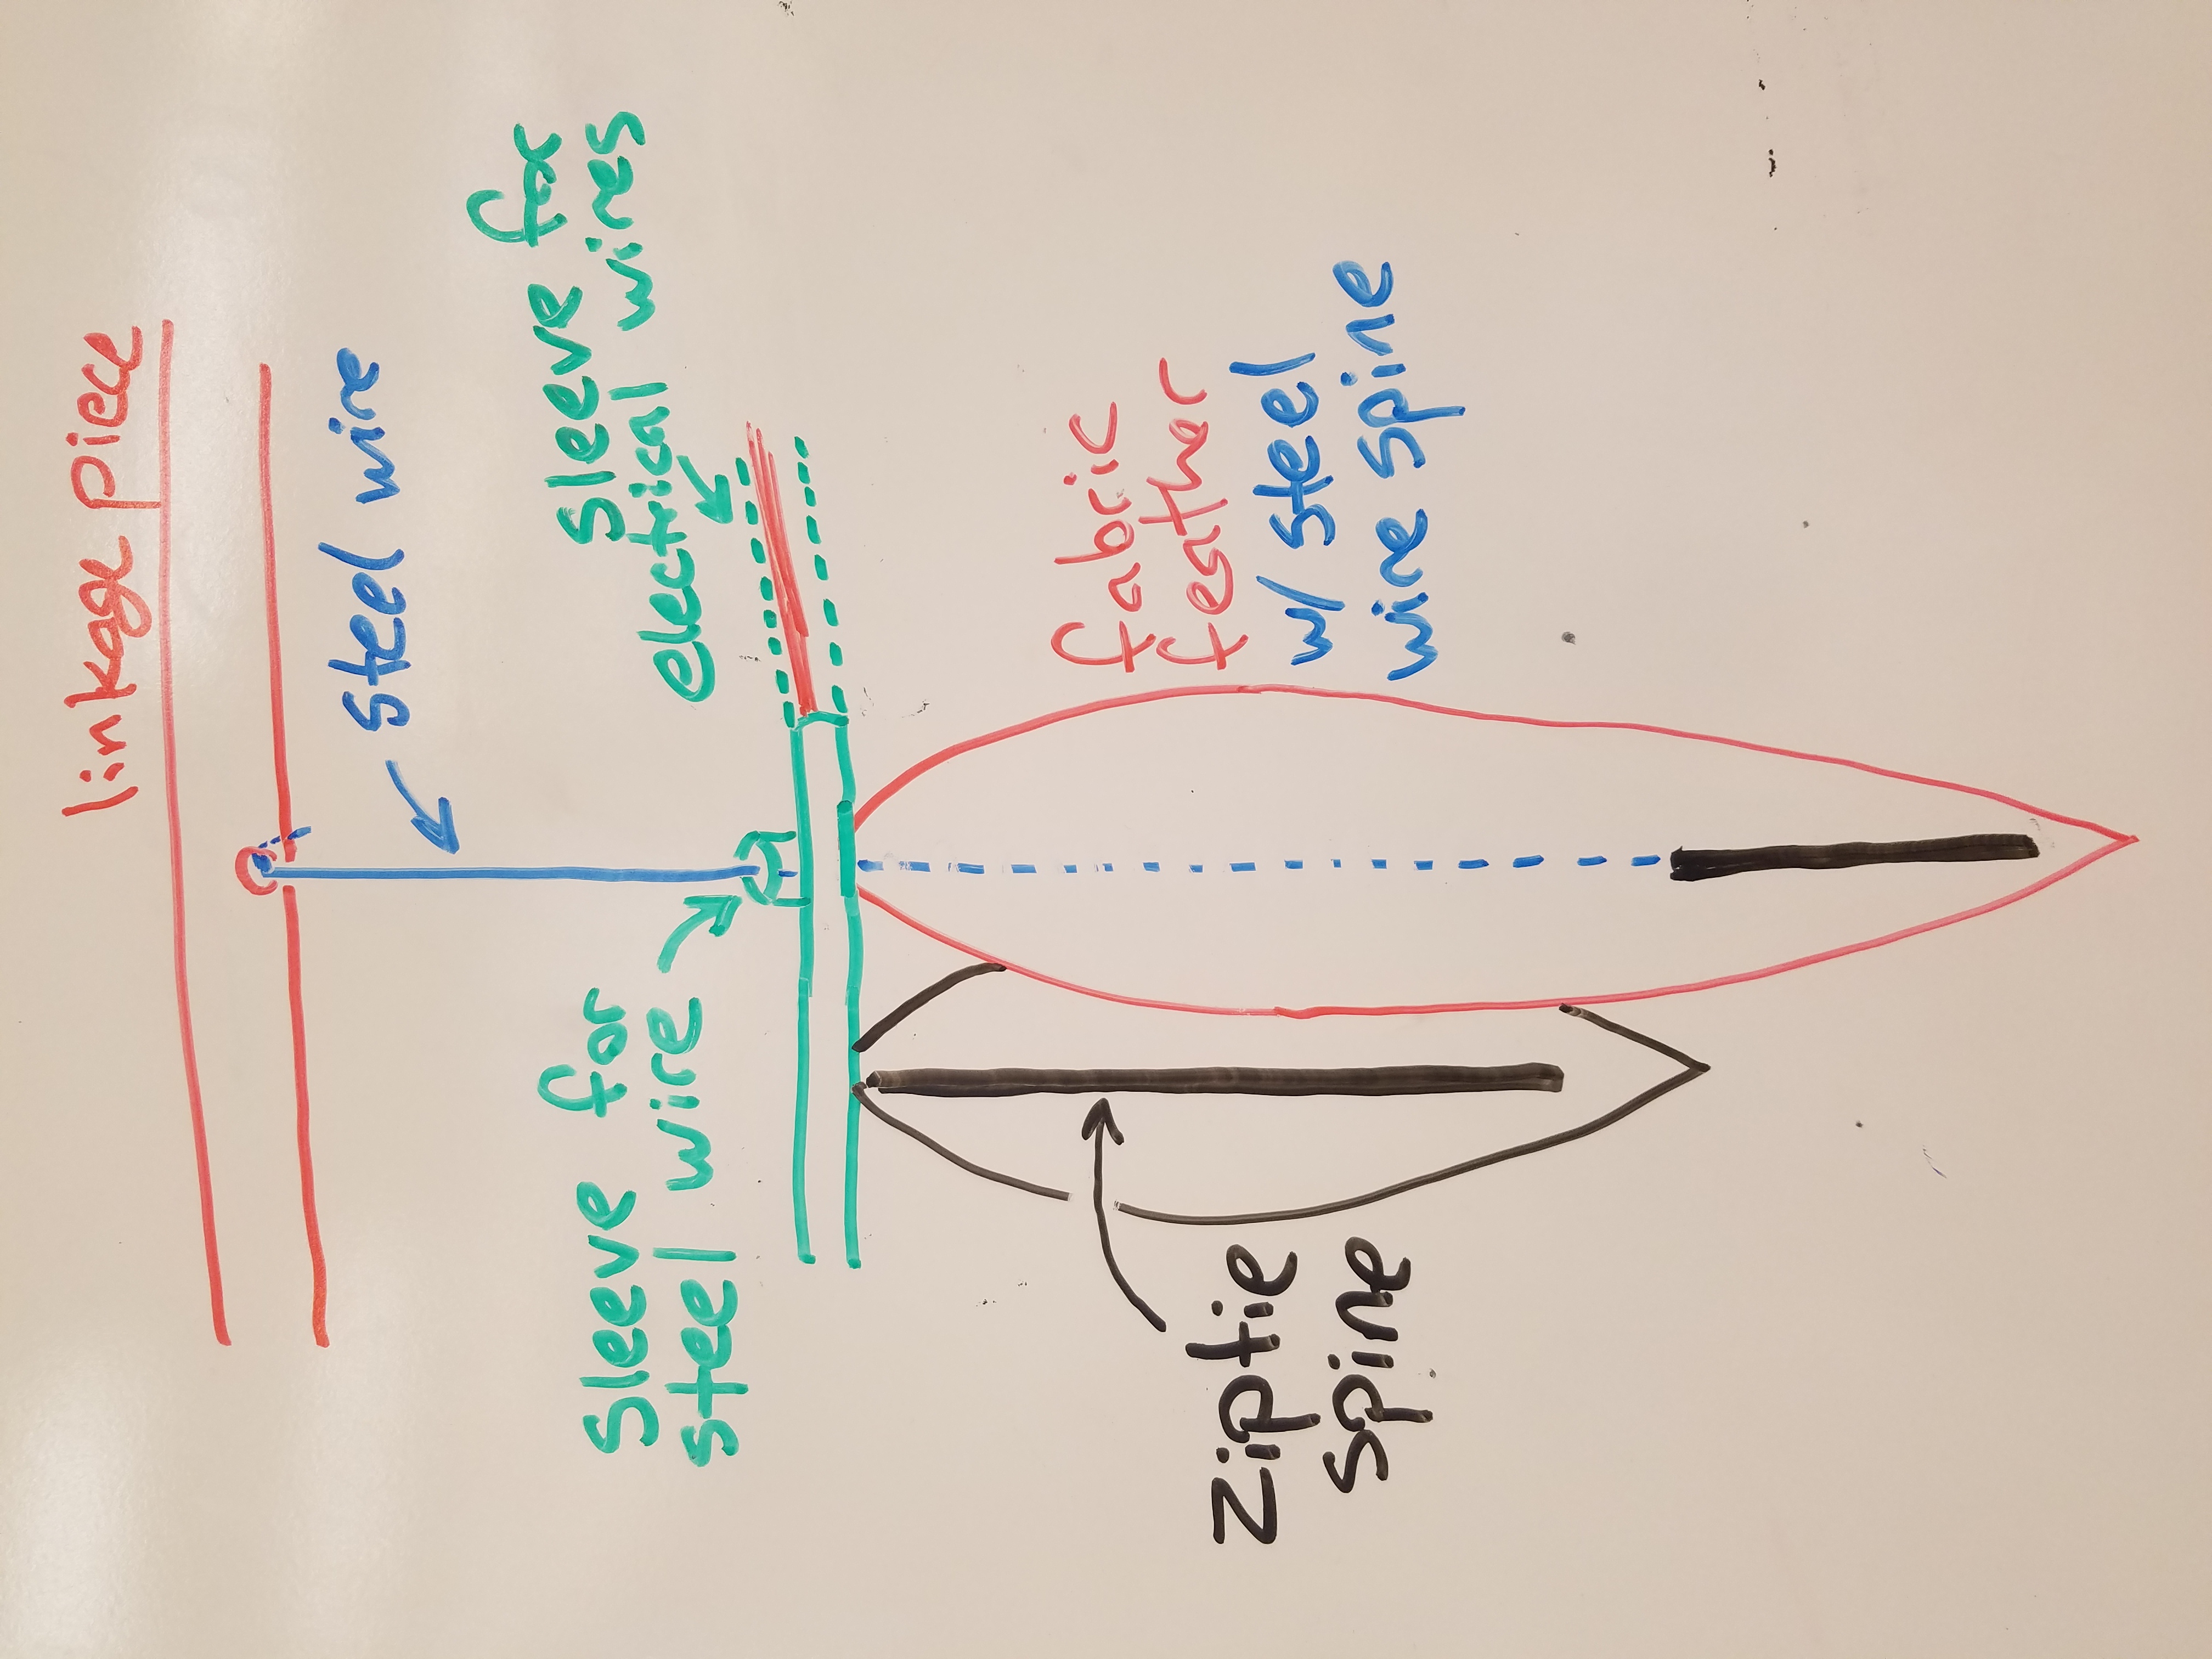 linkage piece
steel wire
sleeve for
steel wire
sleeve for
electrical wires
ziptie
spine
fabric
feather
w/ steel
wire spine